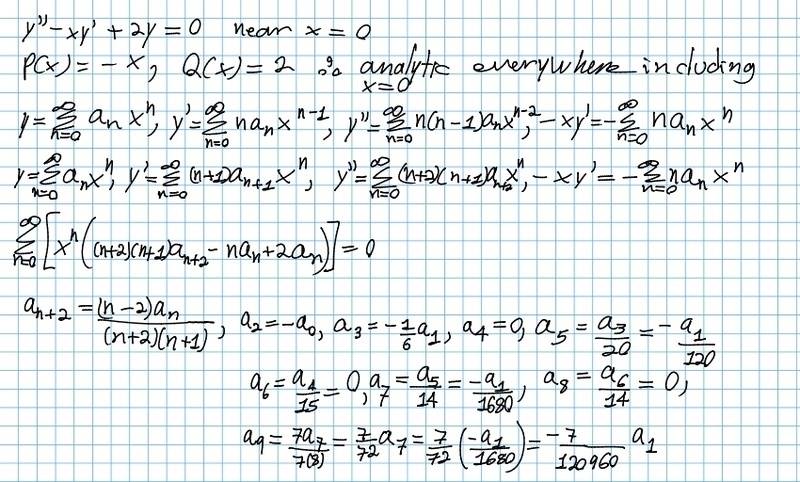 y'' - xy' + 2y = 0 near x = 0
P(x) = -x, Q(x) = 2 ∴ analytic everywhere including x=0
y = ∑_{n=0}^{∞} a_n x^n, y' = ∑_{n=0}^{∞} n a_n x^{n-1}, y'' = ∑_{n=0}^{∞} n(n-1)a_n x^{n-2}, -xy' = -∑_{n=0}^{∞} n a_n x^n
y = ∑_{n=0}^{∞} a_n x^n, y' = ∑_{n=0}^{∞} (n+1)a_{n+1} x^n, y'' = ∑_{n=0}^{∞} (n+2)(n+1)a_{n+2} x^n, -xy' = -∑_{n=0}^{∞} n a_n x^n
∑_{n=0}^{∞} [x^n ((n+2)(n+1)a_{n+2} - n a_n + 2a_n)] = 0
a_{n+2} = (n-2)a_n / (n+2)(n+1), a_2 = -a_0, a_3 = -1/6 a_1, a_4 = 0, a_5 = a_3/20 = -a_1/120
a_6 = a_4/15 = 0, a_7 = a_5/14 = -a_1/1680, a_8 = a_6/14 = 0,
a_9 = 7a_7/7(8) = 7/72 a_7 = 7/72 (-a_1/1680) = -7/120960 a_1